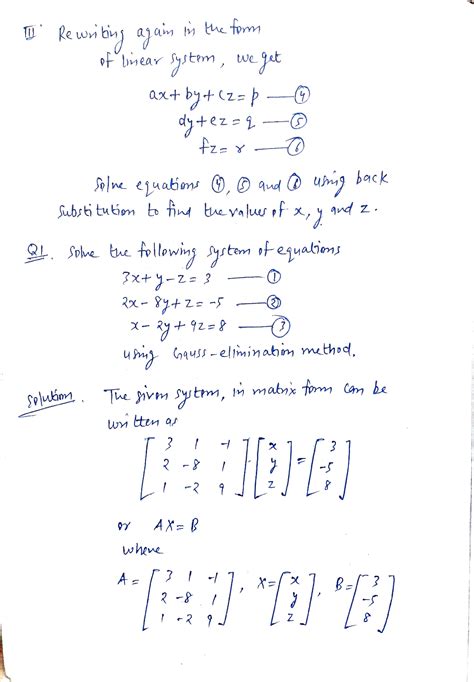 III. Rewriting again in the form
of linear system, we get
ax+ by+cz=p —④
dy+ez=q —⑤
fz=r —⑥
Solve equations ④, ⑤ and ⑥ using back
substitution to find the values of x, y and z.
Q1. Solve the following system of equations
3x+y-z=3 —①
2x-8y+z=-5 —②
x-2y+9z=8 —③
using Gauss-elimination method.
Solution. The given system, in matrix form can be
written as
[3 1 -1] [x] = [3]
[2 -8 1] [y] [-5]
[1 -2 9] [z] [8]
or AX=B
where
A = [3 1 -1], X=[x], B=[3]
[2 -8 1] [y] [-5]
[1 -2 9] [z] [8]